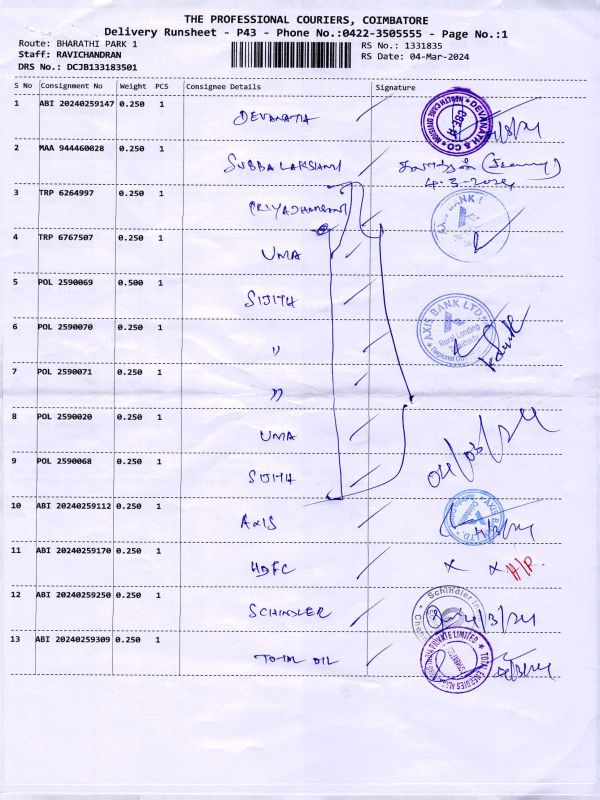 THE PROFESSIONAL COURIERS, COIMBATORE
Delivery Runsheet - P43 - Phone No.:0422-3505555 - Page No.:1
Route: BHARATHI PARK 1
RS No.: 1331835
Staff: RAVICHANDRAN
RS Date: 04-Mar-2024
DRS No.: DCJB133183501
S No Consignment No Weight PCS Consignee Details Signature
1 ABI 20240259147 0.250 1 DEVANATH
DEVANATH & CO
2 MAA 944460028 0.250 1 SUBBA LAKSHMI
4-3-2024
3 TRP 6264997 0.250 1 PRIYADHARSHINI
AXIS BANK L
4 TRP 6767507 0.250 1 UMA
5 POL 2590069 0.500 1 SIJITH
AXIS BANK LTD.
6 POL 2590070 0.250 1 "
7 POL 2590071 0.250 1 "
8 POL 2590020 0.250 1 UMA
04/03/24
9 POL 2590068 0.250 1 SIJITH
10 ABI 20240259112 0.250 1 AXIS
AXIS BANK LTD.
11 ABI 20240259170 0.250 1 HDFC x x H/P.
12 ABI 20240259250 0.250 1 SCHINDLER 4/3/24
Schindler In
13 ABI 20240259309 0.250 1 TOTAL OIL
TOTAL ENERGIES PRIVATE LIMITED